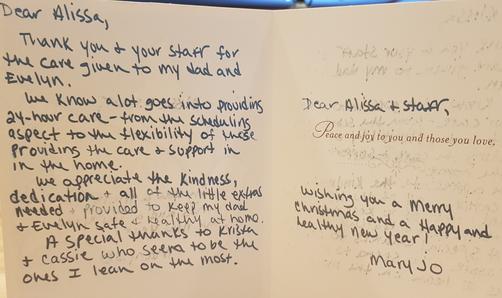 Dear Alissa,
Thank you & your staff for
the care given to my dad and
Evelyn.
We know alot goes into providing
24-hour care - from the scheduling
aspect to the flexibility of those
providing the care & support in
in the home.
We appreciate the kindness,
dedication + all of the little extras
needed + provided to keep my dad
+ Evelyn safe + healthy at home.
A special thanks to Krista
+ Cassie who seem to be the
ones I lean on the most.
Dear Alissa + staff,
Peace and joy to you and those you love.
Wishing you a Merry
Christmas and a Happy and
healthy new year!
Mary Jo